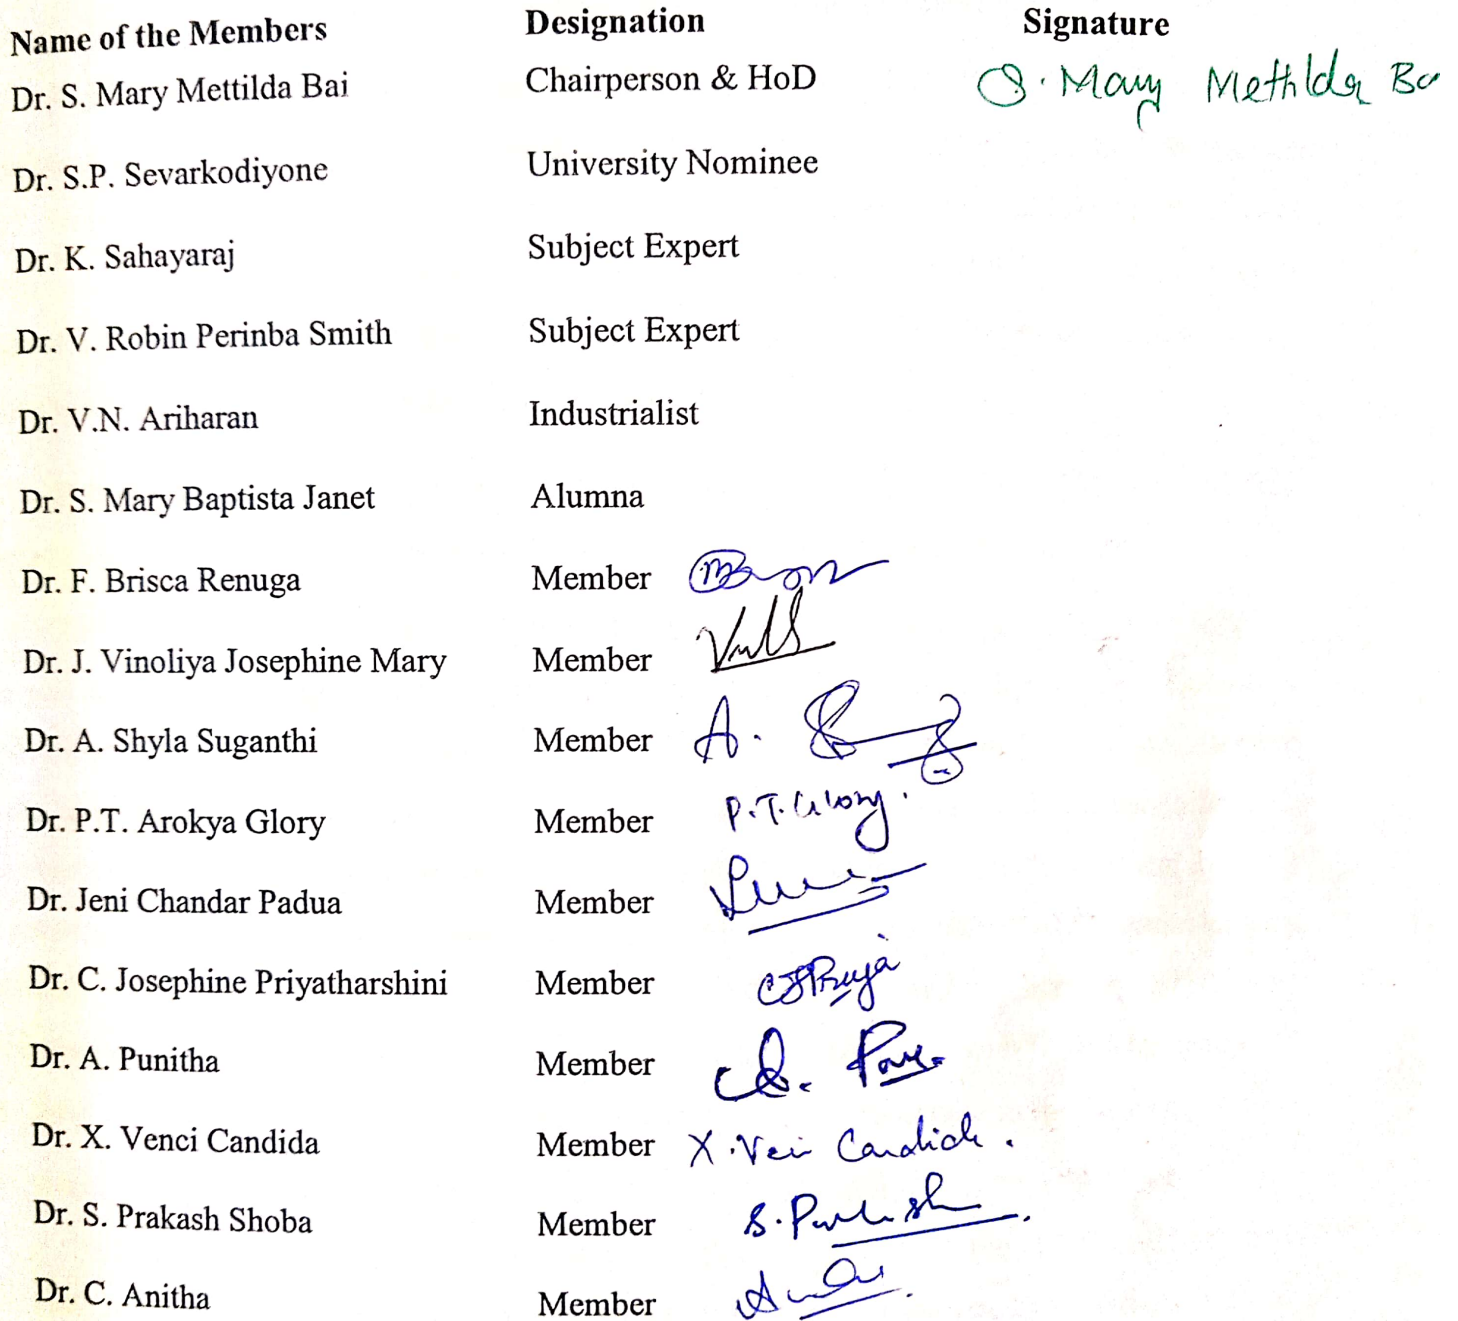 Name of the Members Designation Signature
Dr. S. Mary Mettilda Bai Chairperson & HoD S. Mary Mettilda Ba
Dr. S.P. Sevarkodiyone University Nominee
Dr. K. Sahayaraj Subject Expert
Dr. V. Robin Perinba Smith Subject Expert
Dr. V.N. Ariharan Industrialist
Dr. S. Mary Baptista Janet Alumna
Dr. F. Brisca Renuga Member
Dr. J. Vinoliya Josephine Mary Member
Dr. A. Shyla Suganthi Member A.
Dr. P.T. Arokya Glory Member P.T. Glory.
Dr. Jeni Chandar Padua Member
Dr. C. Josephine Priyatharshini Member CJPriya
Dr. A. Punitha Member
Dr. X. Venci Candida Member X. Candida.
Dr. S. Prakash Shoba Member S. Prakash
Dr. C. Anitha Member